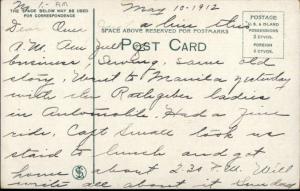 No 6 - AM
May 10-1912
THE SPACE BELOW MAY BE USED
FOR CORRESPONDENCE
POSTAGE
U.S. & ISLAND
POSSESSIONS
2 CTVOS.
FOREIGN
4 CTVOS.
a line this
Dear
SPACE ABOVE RESERVED FOR POSTMARKS
POST CARD
A.M. Am
business, Sewing, same old
story. Went to Manila yesterday
with the Rathgeber ladies
in Automobile. Had a fine
ride, Capt Small took us
staid to lunch and got
home about 2.30 P.M. Will
write all about it Sunday